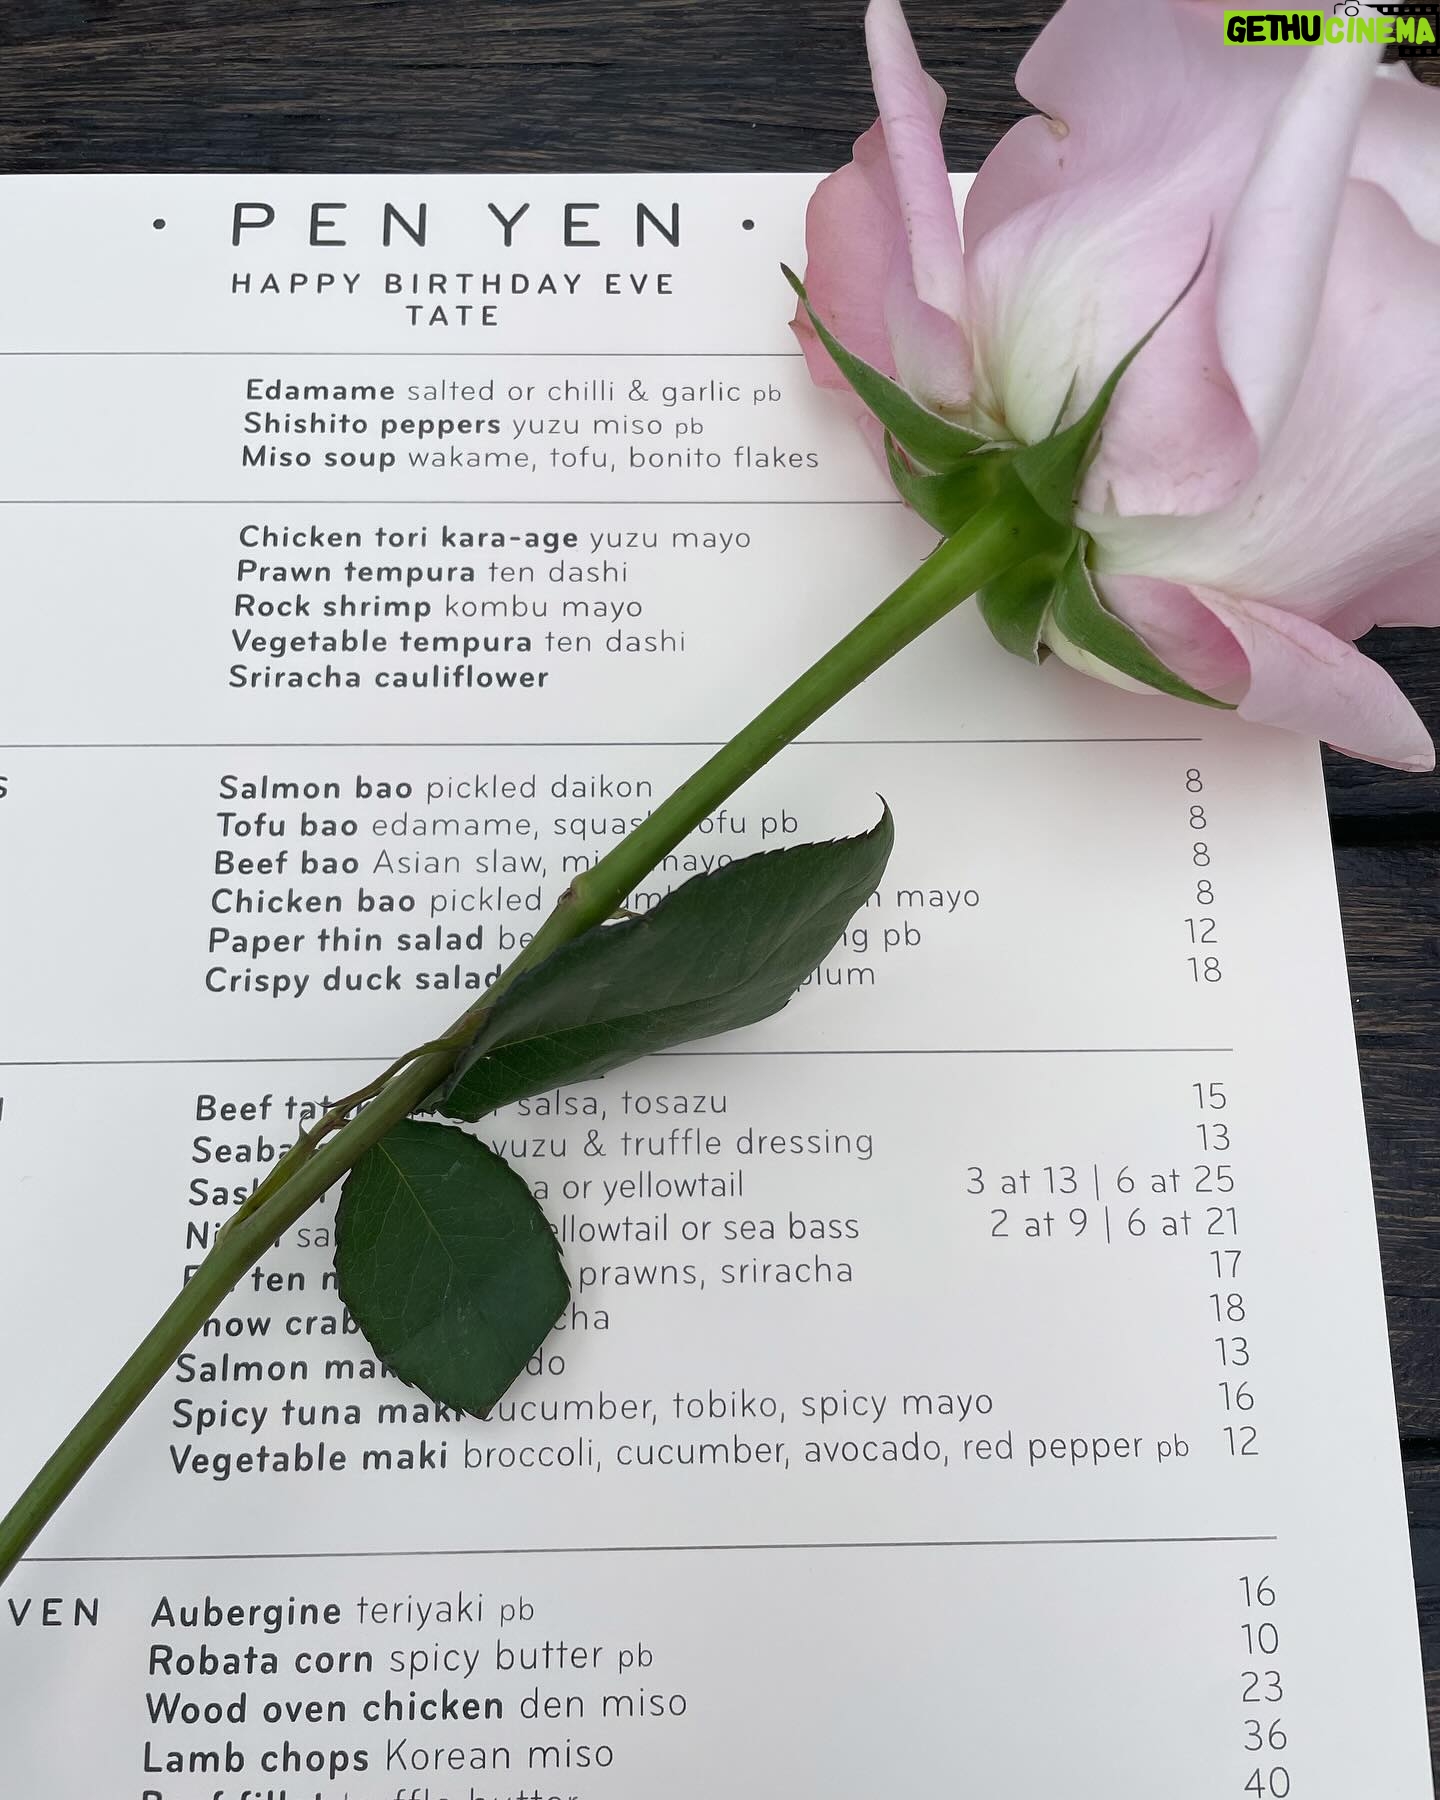 GETHUCINEMA
· PEN YEN ·
HAPPY BIRTHDAY EVE
TATE
Edamame salted or chilli & garlic pb
Shishito peppers yuzu miso pb
Miso soup wakame, tofu, bonito flakes
Chicken tori kara-age yuzu mayo
Prawn tempura ten dashi
Rock shrimp kombu mayo
Vegetable tempura ten dashi
Sriracha cauliflower
Salmon bao pickled daikon 8
Tofu bao edamame, pb 8
Beef bao Asian slaw, 8
Chicken bao pickled mayo 8
Paper thin salad pb 12
Crispy duck salad 18
Beef salsa, tosazu 15
yuzu & truffle dressing 13
or yellowtail 3 at 13 | 6 at 25
or sea bass 2 at 9 | 6 at 21
ten prawns, sriracha 17
crab 18
Salmon 13
Spicy tuna maki cucumber, tobiko, spicy mayo 16
Vegetable maki broccoli, cucumber, avocado, red pepper pb 12
VEN Aubergine teriyaki pb 16
Robata corn spicy butter pb 10
Wood oven chicken den miso 23
Lamb chops Korean miso 36
40